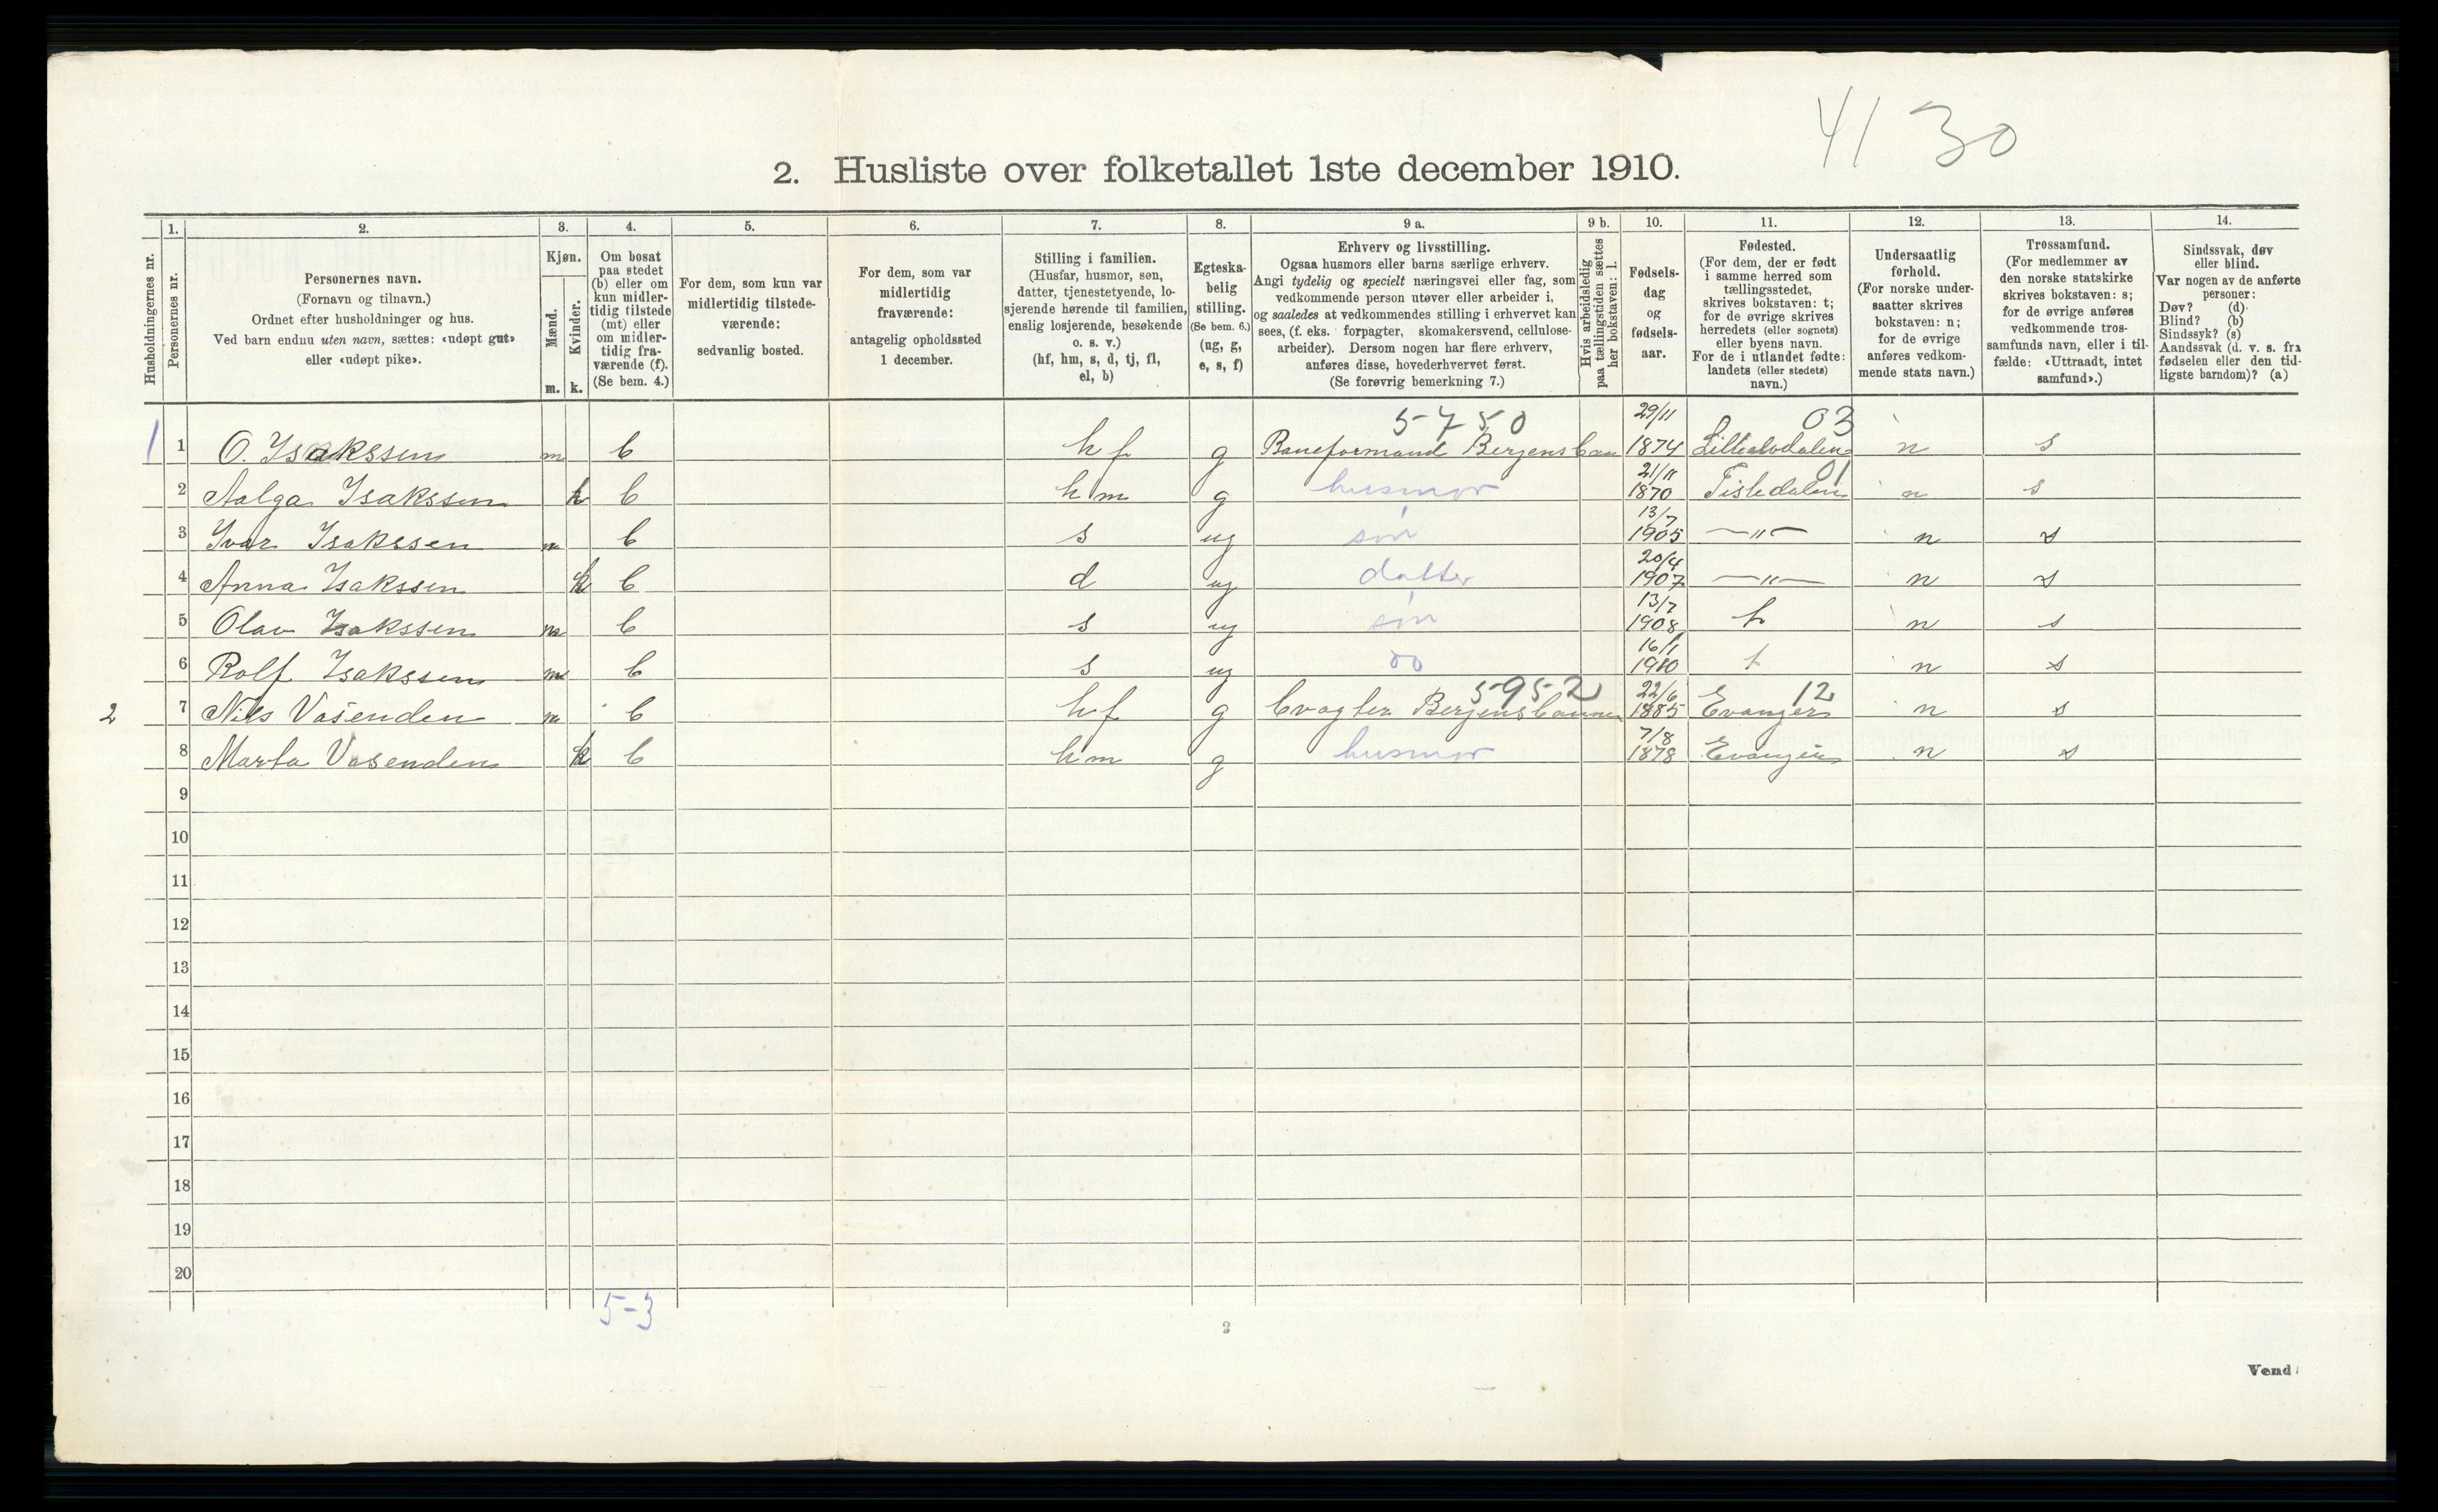 41 30
2. Husliste over folketallet 1ste december 1910.
Husholdningernes nr.
1. Personernes nr.
2. Personernes navn.
(Fornavn og tilnavn.)
Ordnet efter husholdninger og hus.
Ved barn endnu uten navn, sættes: «udøpt gut»
eller «udøpt pike».
3. Kjøn.
Mænd. m.
Kvinder. k.
4. Om bosat
paa stedet
(b) eller om
kun midler-
tidig tilstede
(mt) eller
om midler-
tidig fra-
værende (f).
(Se bem. 4.)
5. For dem, som kun var
midlertidig tilstede-
værende:
sedvanlig bosted.
6. For dem, som var
midlertidig
fraværende:
antagelig opholdssted
1 december.
7. Stilling i familien.
(Husfar, husmor, søn,
datter, tjenestetyende, lo-
sjerende hørende til familien,
enslig losjerende, besøkende
o. s. v.)
(hf, hm, s, d, tj, fl,
el, b)
8. Egteska-
belig
stilling.
(Se bem. 6.)
(ug, g,
e, s, f)
9 a. Erhverv og livsstilling.
Ogsaa husmors eller barns særlige erhverv.
Angi tydelig og specielt næringsvei eller fag, som
vedkommende person utøver eller arbeider i,
og saaledes at vedkommendes stilling i erhvervet kan
sees, (f. eks. forpagter, skomakersvend, cellulose-
arbeider). Dersom nogen har flere erhverv,
anføres disse, hovederhvervet først.
(Se forøvrig bemerkning 7.)
9 b. Hvis arbeidsledig
paa tællingstiden sættes
her bokstaven: l.
10. Fødsels-
dag
og
fødsels-
aar.
11. Fødested.
(For dem, der er født
i samme herred som
tællingsstedet,
skrives bokstaven: t;
for de øvrige skrives
herredets (eller sognets)
eller byens navn.
For de i utlandet fødte:
landets (eller stedets)
navn.)
12. Undersaatlig
forhold.
(For norske under-
saatter skrives
bokstaven: n;
for de øvrige
anføres vedkom-
mende stats navn.)
13. Trossamfund.
(For medlemmer av
den norske statskirke
skrives bokstaven: s;
for de øvrige anføres
vedkommende tros-
samfunds navn, eller i til-
fælde: «Uttraadt, intet
samfund».)
14. Sindssvak, døv
eller blind.
Var nogen av de anførte
personer:
Døv? (d)
Blind? (b)
Sindssyk? (s)
Aandssvak (d. v. s. fra
fødselen eller den tid-
ligste barndom)? (a)
5750 29/11 03
1 1 O. Isakssen m b hf g Baneformand Bergensban 1874 Lilleelvdalen n s
21/11 01
2 Aalga Isakssen k b hm g husmor 1870 Tistedalen n s
13/7
3 Ivar Isakssen m b s ug søn 1905 —"— n s
20/4
4 Anna Isakssen k b d ug datter 1907 —"— n s
13/7
5 Olav Isakssen m b s ug søn 1908 t n s
16/1
6 Rolf Isakssen m b s ug do 1910 t n s
5952 22/6 12
2 7 Nils Vasenden m b hf g bvogter Bergensbannen 1885 Evanger n s
7/8
8 Marta Vasenden k b hm g husmor 1878 Evanger n s
9
10
11
12
13
14
15
16
17
18
19
20
5-3
2
Vend